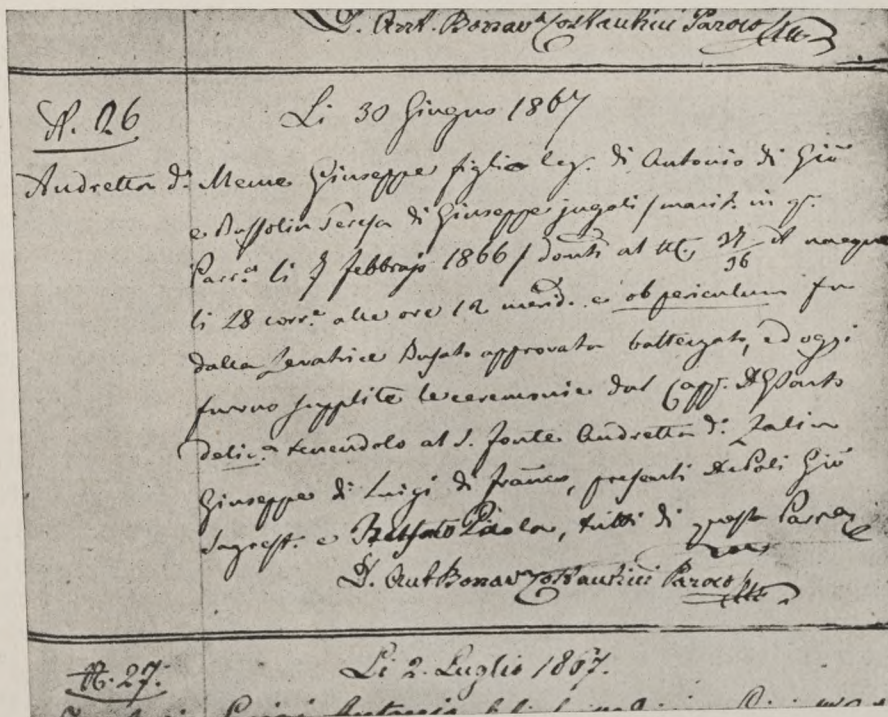 D. Ant. Bonavᵃ Costantini Paroco
N. 26
Li 30 Giugno 1867
Andretta dº Meme Giuseppe figlio leg. di Antonio di Giõ
e Bussolin Teresa di Giuseppe jugali / marit. in qª
Parrª li 7 febbrajo 1866 / domti al N. 37/36 è nacque
li 28 corrᵉ alle ore 12 merid. e ob periculum fu
dalla Levatrice Busato approvata battezzato, ed oggi
furono supplite le ceremonie dal Capp.
delicº tenendolo al S. Fonte Andretta dº Zalin
Giuseppe di Luigi di Franco, presenti Giõ
Sagrest. e Paola, tutti di questa Parra
D. Ant Bonavª Costantini Paroco
N. 27.
Li 2. Luglio 1867.